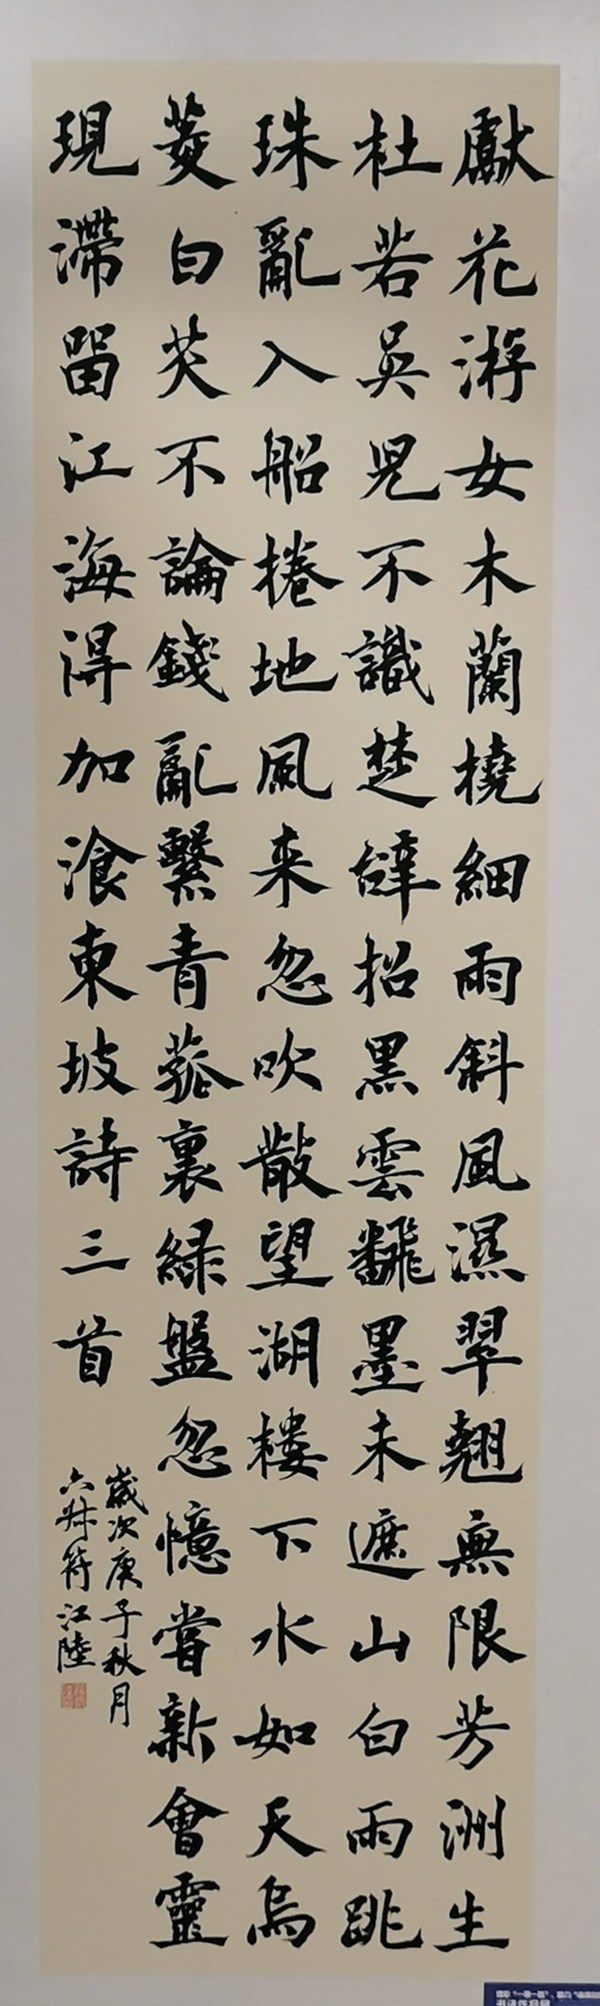 獻花游女木蘭橈細雨斜風濕翠翹無限芳洲生
杜若吳兒不識楚辭招黑雲飜墨未遮山白雨跳
珠亂入船捲地風来忽吹散望湖樓下水如天烏
菱白芡不論錢亂繫青菰裹綠盤忽憶嘗新會靈
現滯留江海得加湌東坡詩三首
歲次庚子秋月
符江陸